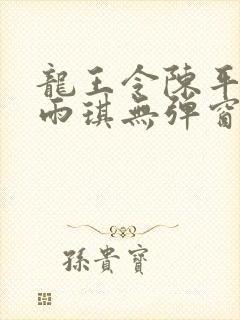 龍王令陳平
雨琪無彈窗
孫貴寶